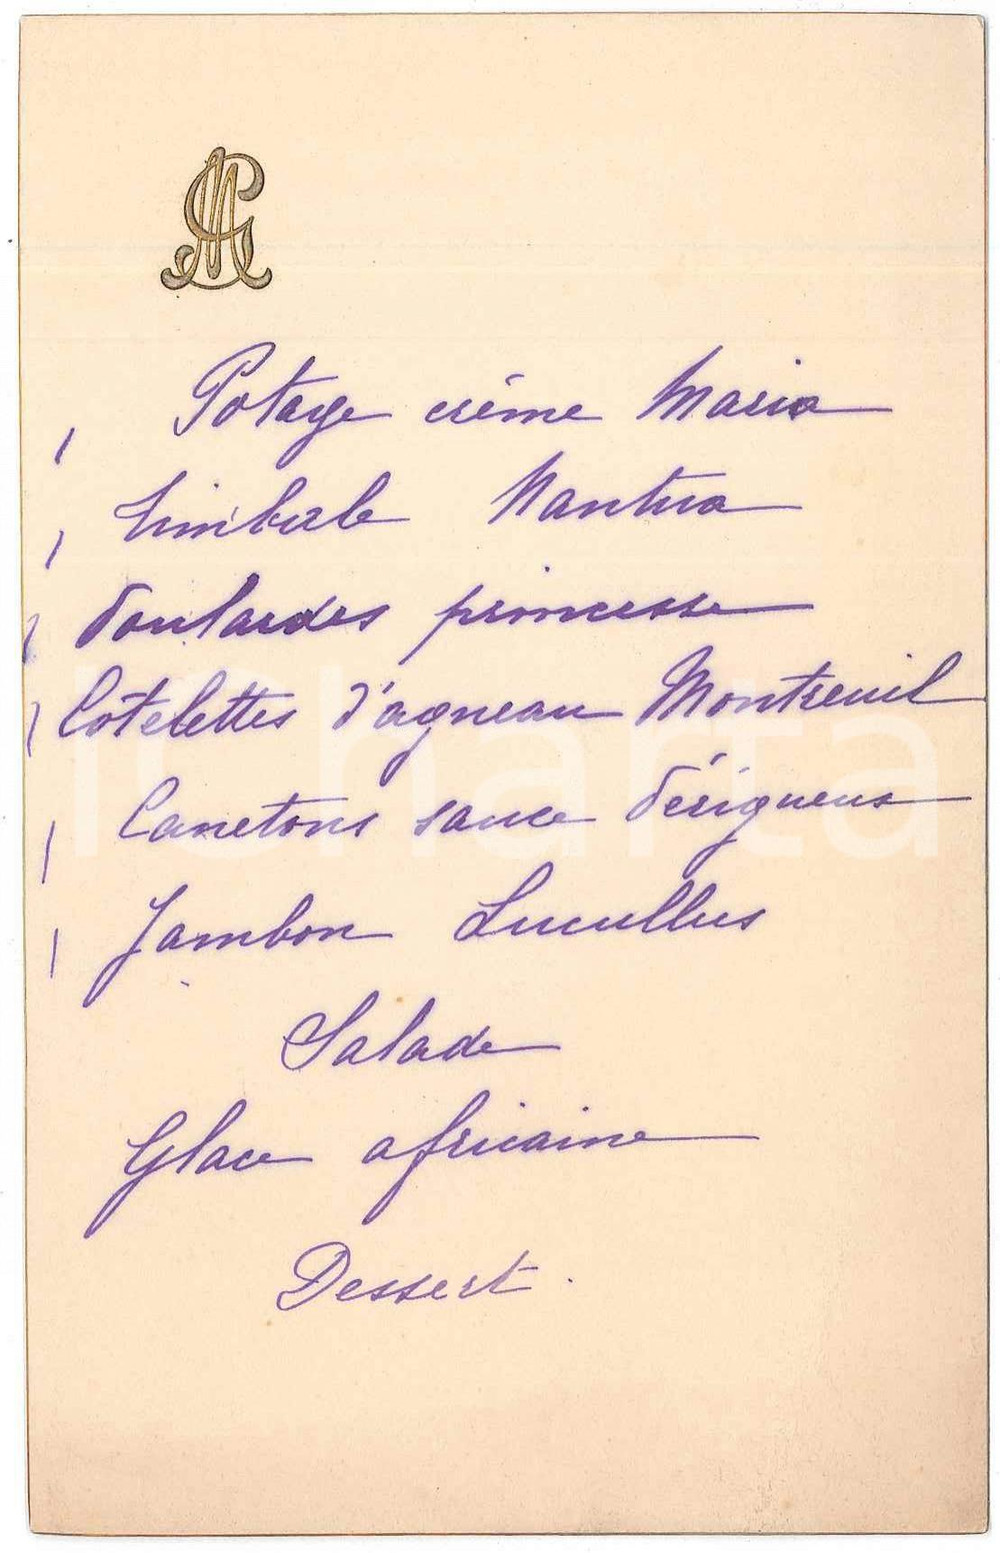 Potage crême Maria
Timbale Nantua
Poulardes princesse
Côtelettes d'agneau Montreuil
Canetons sauce Périgueux
Jambon Lucullus
Salade
Glace africaine
Dessert.
iCharta